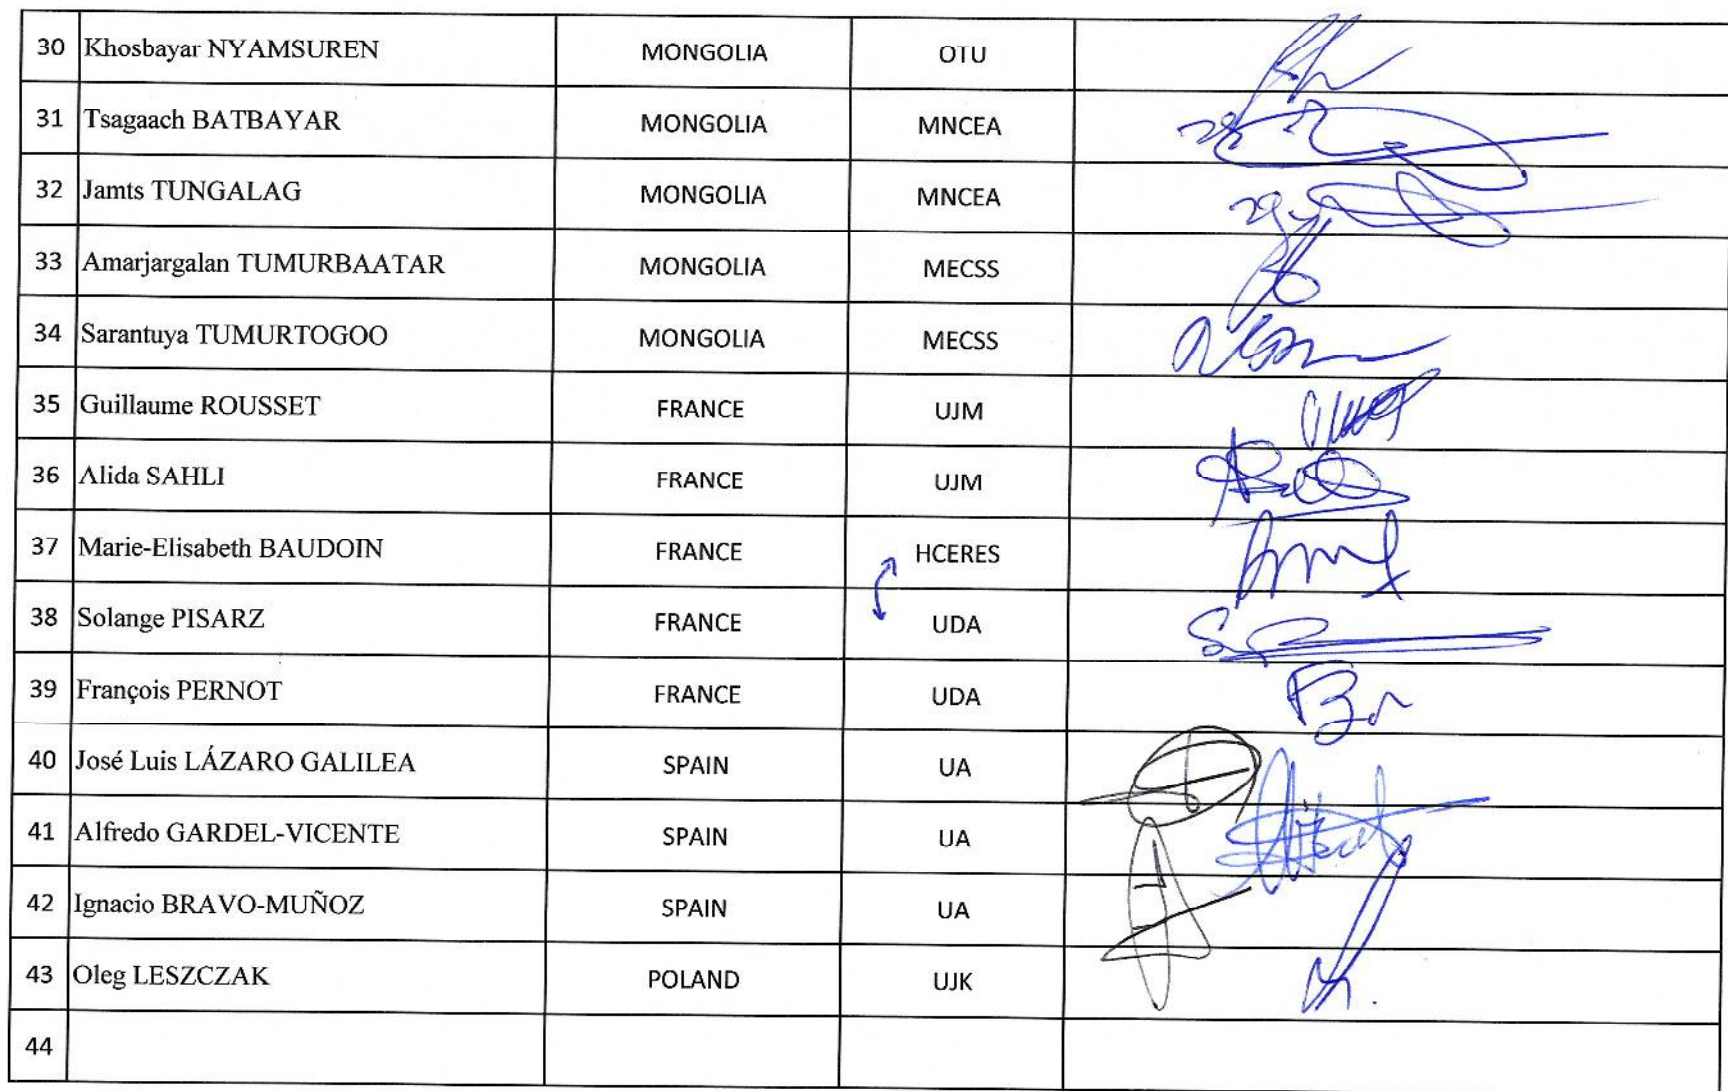 30 Khosbayar NYAMSUREN MONGOLIA OTU
31 Tsagaach BATBAYAR MONGOLIA MNCEA
32 Jamts TUNGALAG MONGOLIA MNCEA
33 Amarjargalan TUMURBAATAR MONGOLIA MECSS
34 Sarantuya TUMURTOGOO MONGOLIA MECSS
35 Guillaume ROUSSET FRANCE UJM
36 Alida SAHLI FRANCE UJM
37 Marie-Elisabeth BAUDOIN FRANCE HCERES
38 Solange PISARZ FRANCE UDA
39 François PERNOT FRANCE UDA
40 José Luis LÁZARO GALILEA SPAIN UA
41 Alfredo GARDEL-VICENTE SPAIN UA
42 Ignacio BRAVO-MUÑOZ SPAIN UA
43 Oleg LESZCZAK POLAND UJK
44